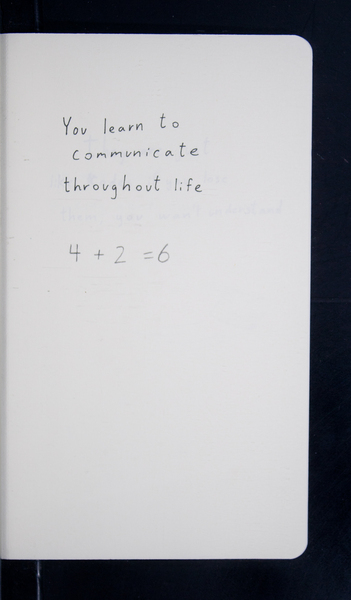 You learn to
communicate
throughout life
4 + 2 = 6